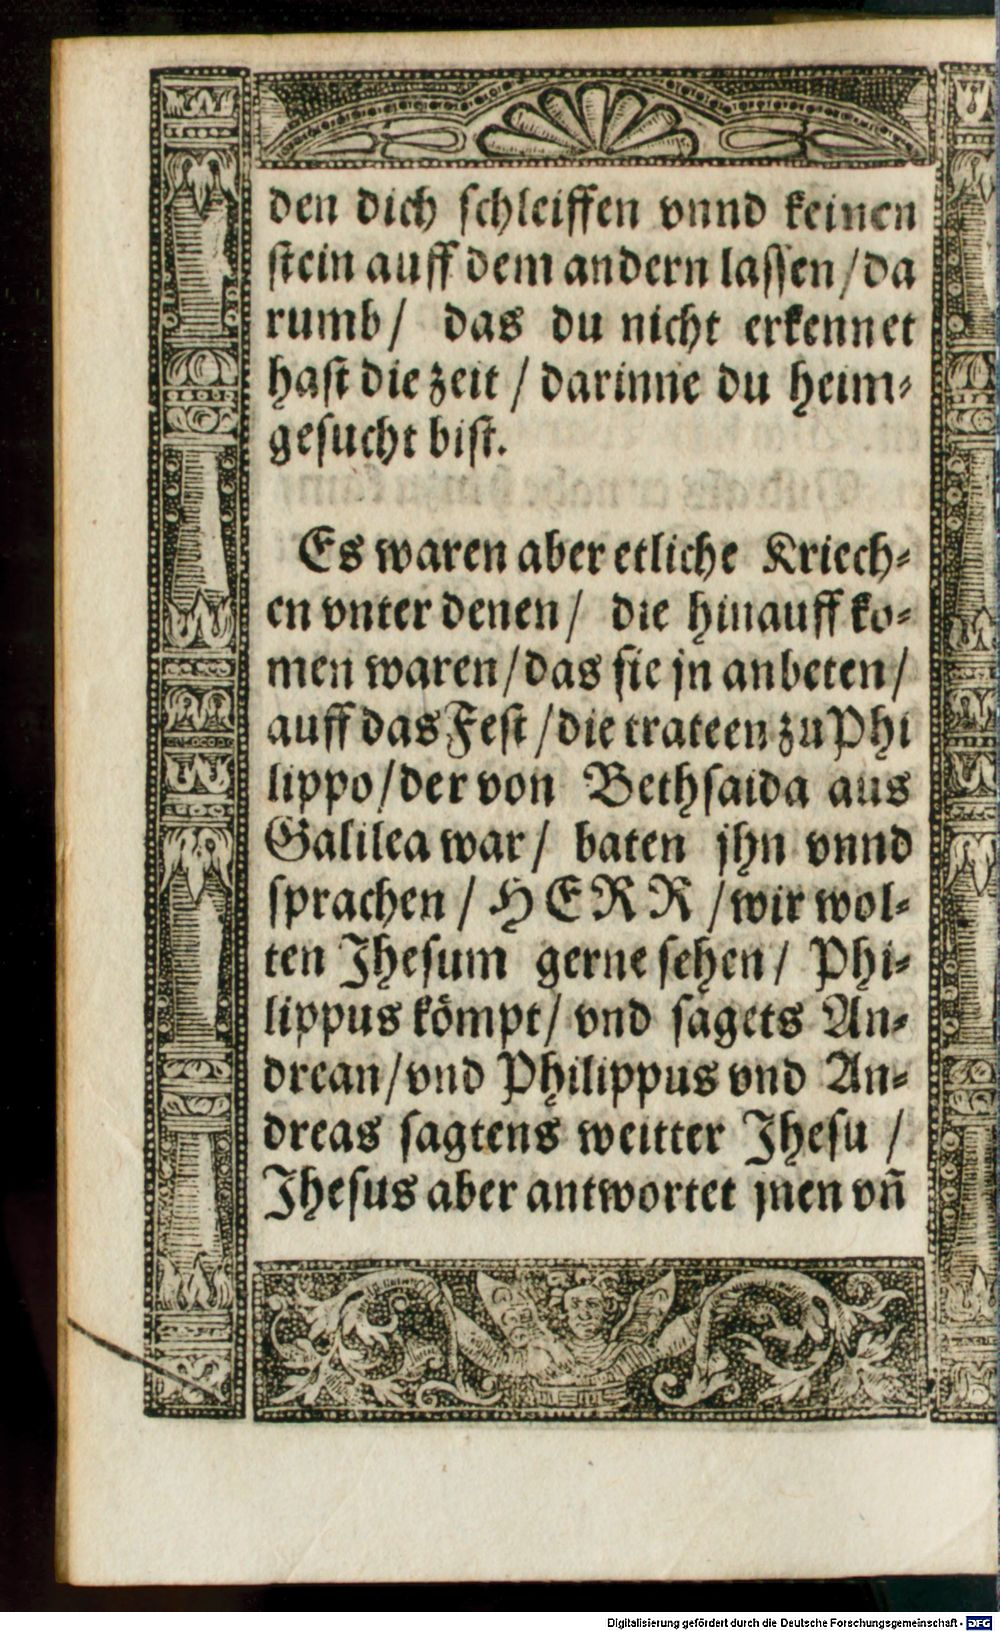 den dich schleiffen vnnd keinen
stein auff dem andern lassen/da
rumb/ das du nicht erkennet
hast die zeit / darinne du heim⸗
gesucht bist.
Es waren aber etliche Kriech⸗
en vnter denen/ die hinauff ko⸗
men waren/das sie jn anbeten/
auff das Fest /die trateen zu Phi
lippo/der von Bethsaida aus
Galilea war/ baten jhn vnnd
sprachen / HERR /wir wol⸗
ten Jhesum gerne sehen/ Phi⸗
lippus kömpt/ vnd sagets An⸗
drean/vnd Philippus vnd An⸗
dreas sagtens weitter Jhesu /
Jhesus aber antwortet jnen vn̄
Digitalisierung gefördert durch die Deutsche Forschungsgemeinschaft - DFG